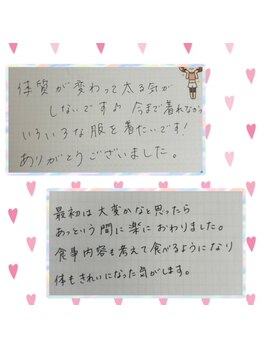 体質が変わって太る気が
しないです♪ 今まで着れなかった
いろいろな服を着たいです!
ありがとうございました。
最初は大変かなと思ったら
あっという間に楽におわりました。
食事内容も考えて食べるようになり
体もきれいになった気がします。